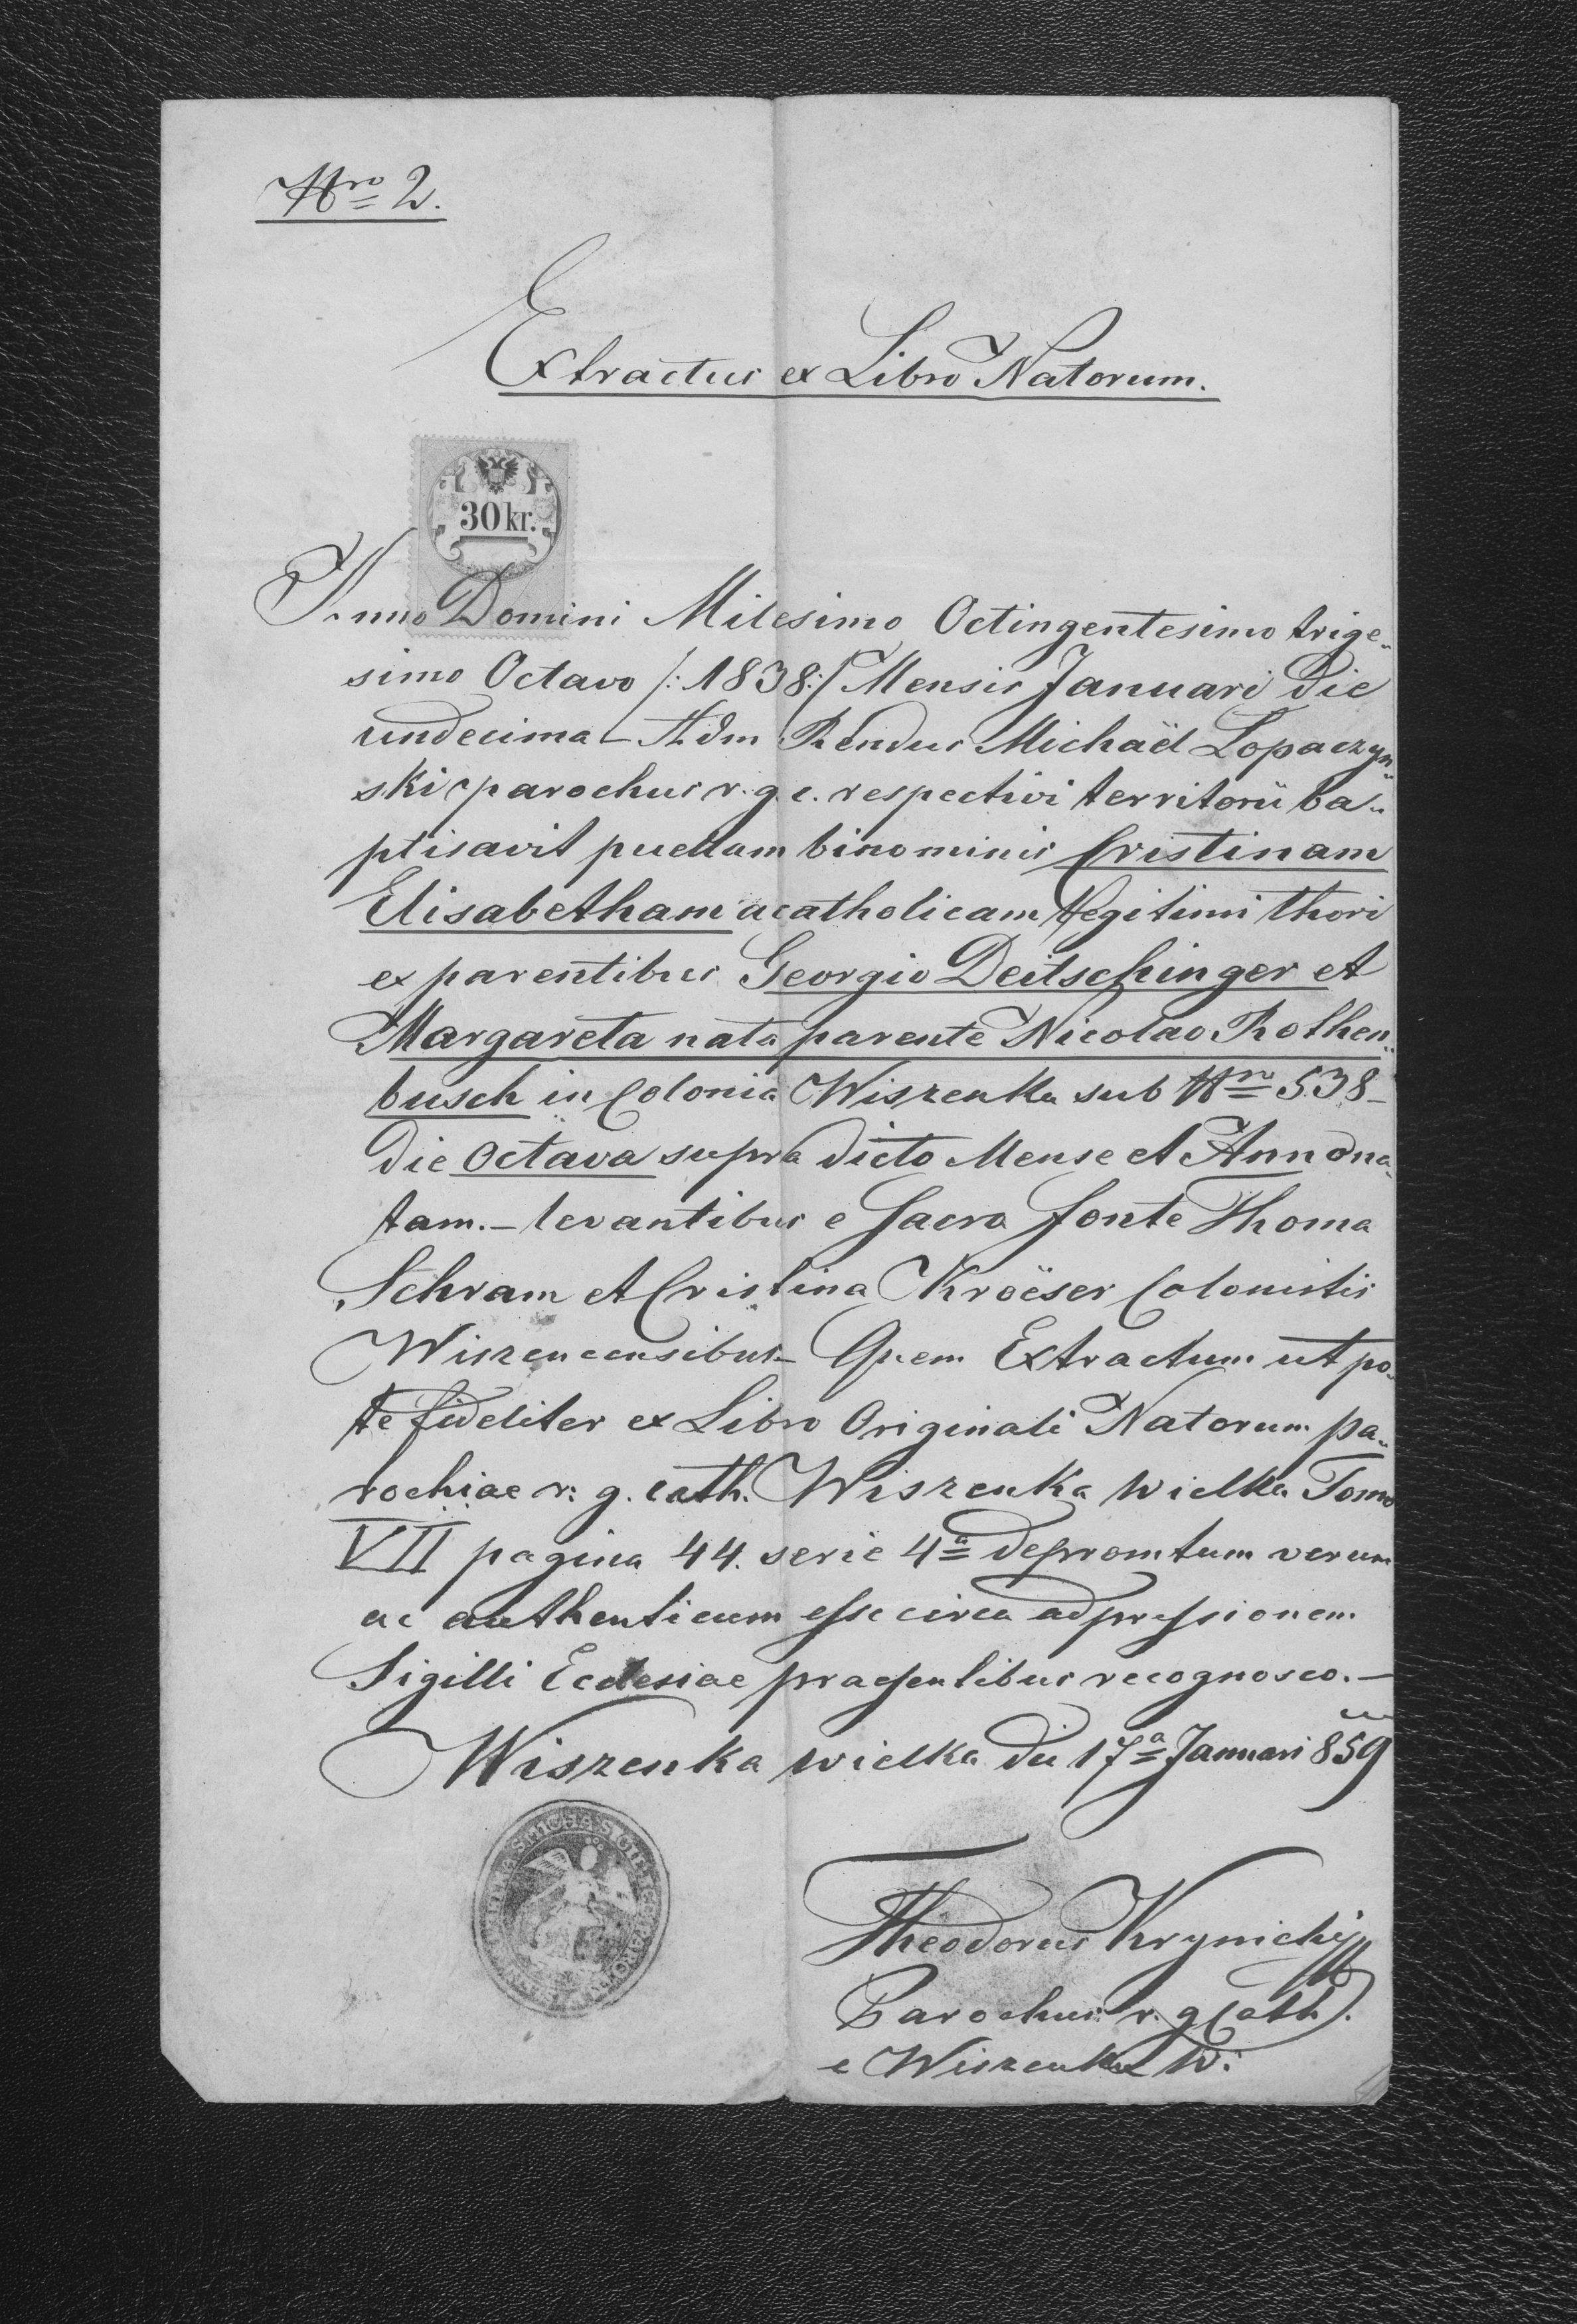 Nro 2.
Extractus ex Libro Natorum.
30 kr.
Anno Domini Milesimo Octingentesimo trige„
simo Octavo /: 1838 :/ Mensis Januari die
undecima – Adm Rendus Michaël Lopaczyn„
ski parochus r. g. c. respectivi territorii ba„
ptisavit puellam binominis Cristinam
Elisabetham acatholicam legitimi thori
ex parentibus Georgio Deitschinger et
Margareta nata parente Nicolao Rothen„
busch in Colonia Wiszenka sub Nro 538 –
die Octava supra dicto Mense et Anno na„
tam. – levantibus e Sacro fonte Thoma
Schram et Cristina Kroëser Colonistis
Wiszencensibus – Quem Extractum utpo„
te fideliter ex Libro Originali Natorum pa„
rochiae r. g. cath. Wiszenka wielka Tomo
VII pagina 44. serie 4a depromtum verum
ac authenticum esse circa adpressionem
Sigilli Ecclesiae praesentibus recognosco. –
Wiszenka wielka die 17a Januari 859
Theodorus Krynickij
Parochus r. g. Cath.
e Wiszenka W: